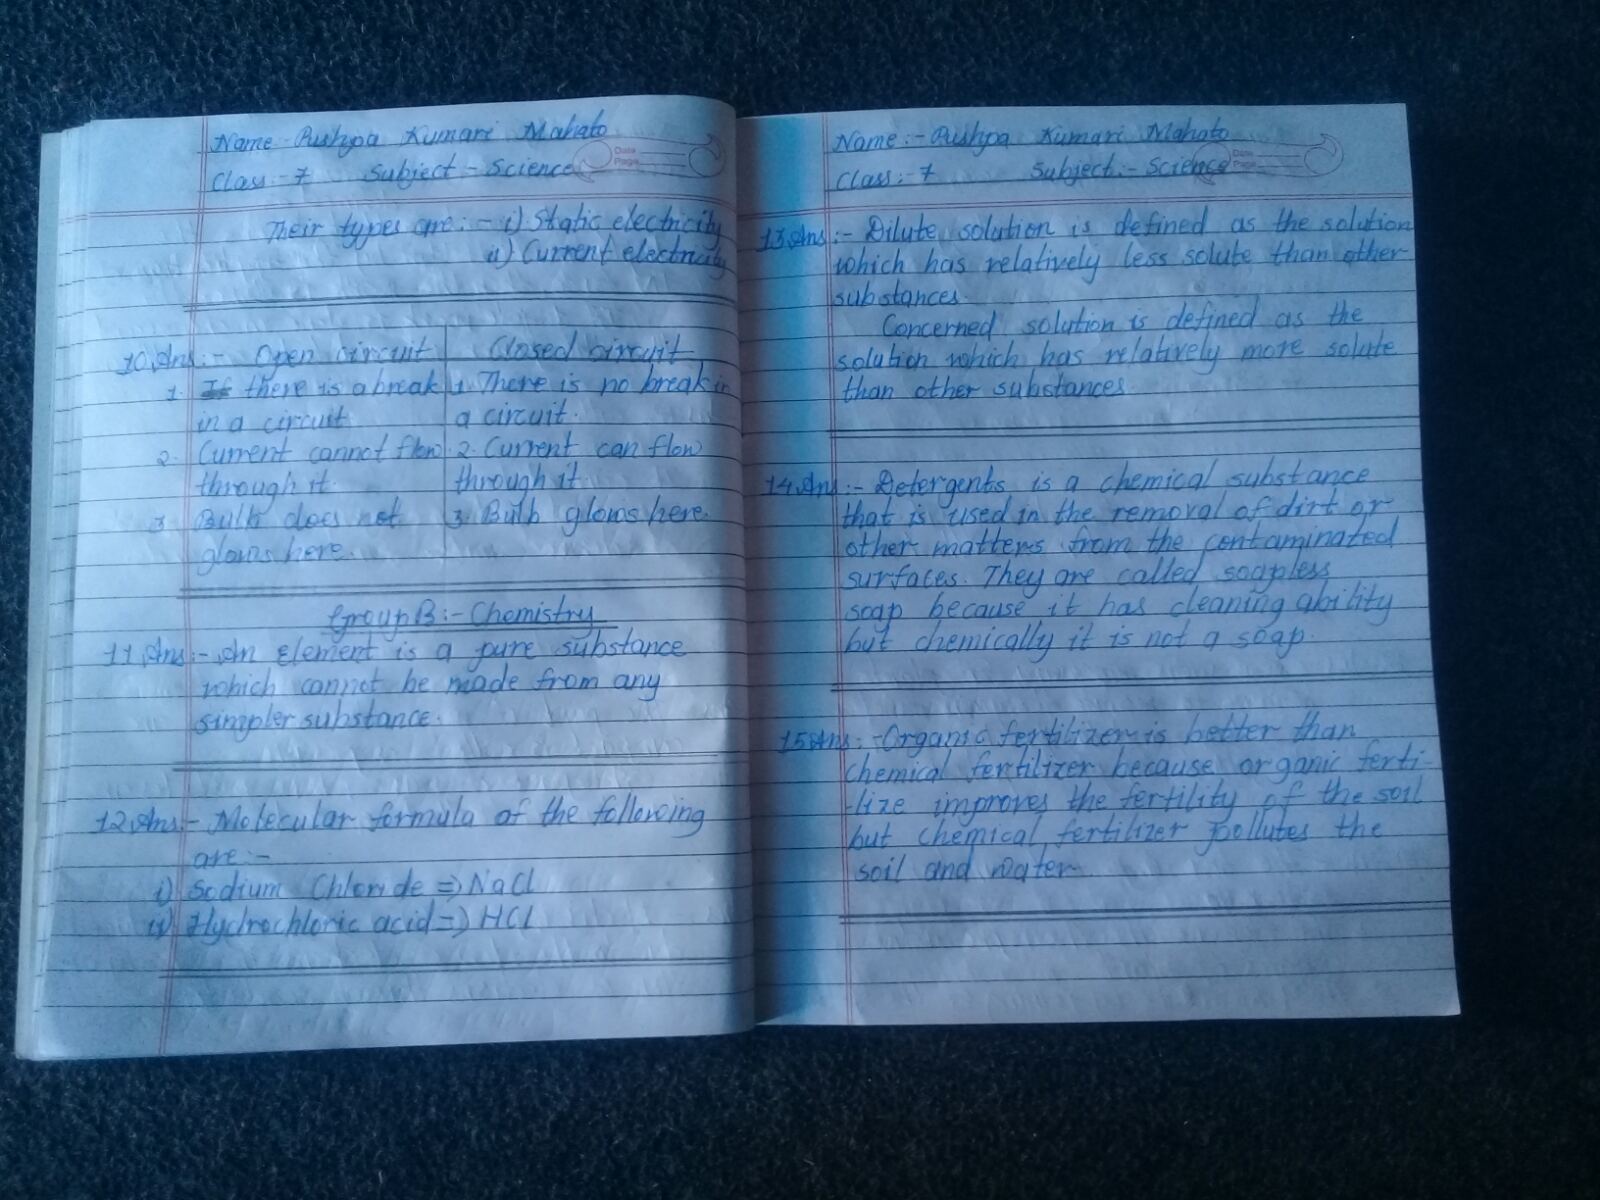 Name:- Pushpa Kumari Mahato
Date
Page
Class:- 7 Subject:- Science
Their types are:- i) Static electricity
ii) Current electricity
10.Ans:- Open circuit Closed circuit
1. If there is a break 1. There is no break in
in a circuit a circuit.
2. Current cannot flow 2. Current can flow
through it. through it.
3. Bulb does not 3. Bulb glows here.
glows here.
Group B:- Chemistry
11.Ans:- An element is a pure substance
which cannot be made from any
simpler substance.
12.Ans:- Molecular formula of the following
are:-
i) Sodium Chloride => NaCl
ii) Hydrochloric acid => HCl
Name:- Pushpa Kumari Mahato
Date
Page
Class:- 7 Subject:- Science
13.Ans:- Dilute solution is defined as the solution
which has relatively less solute than other
substances.
Concerned solution is defined as the
solution which has relatively more solute
than other substances.
14.Ans:- Detergents is a chemical substance
that is used in the removal of dirt or
other matters from the contaminated
surfaces. They are called soapless
soap because it has cleaning ability
but chemically it is not a soap.
15.Ans:- Organic fertilizer is better than
chemical fertilizer because organic ferti-
-lize improves the fertility of the soil
but chemical fertilizer pollutes the
soil and water.